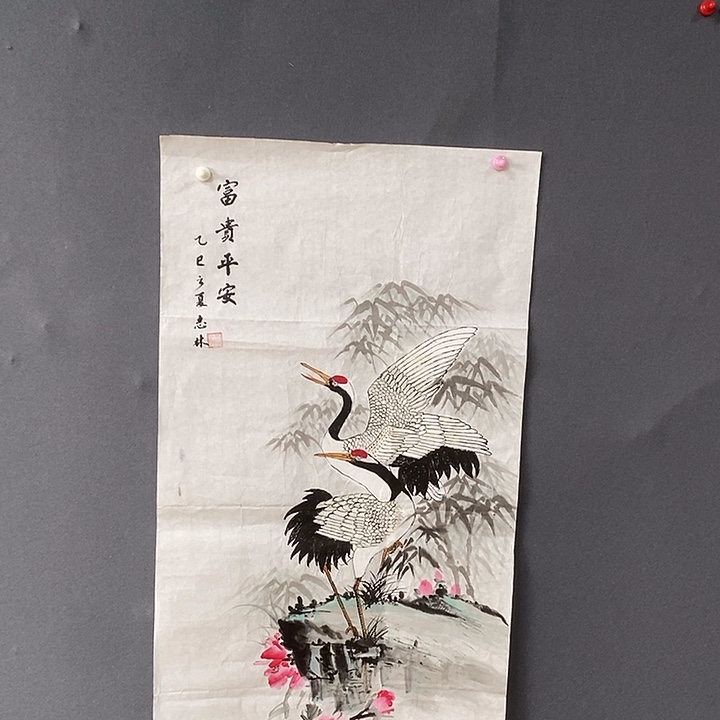 富貴平安
乙巳之夏志林